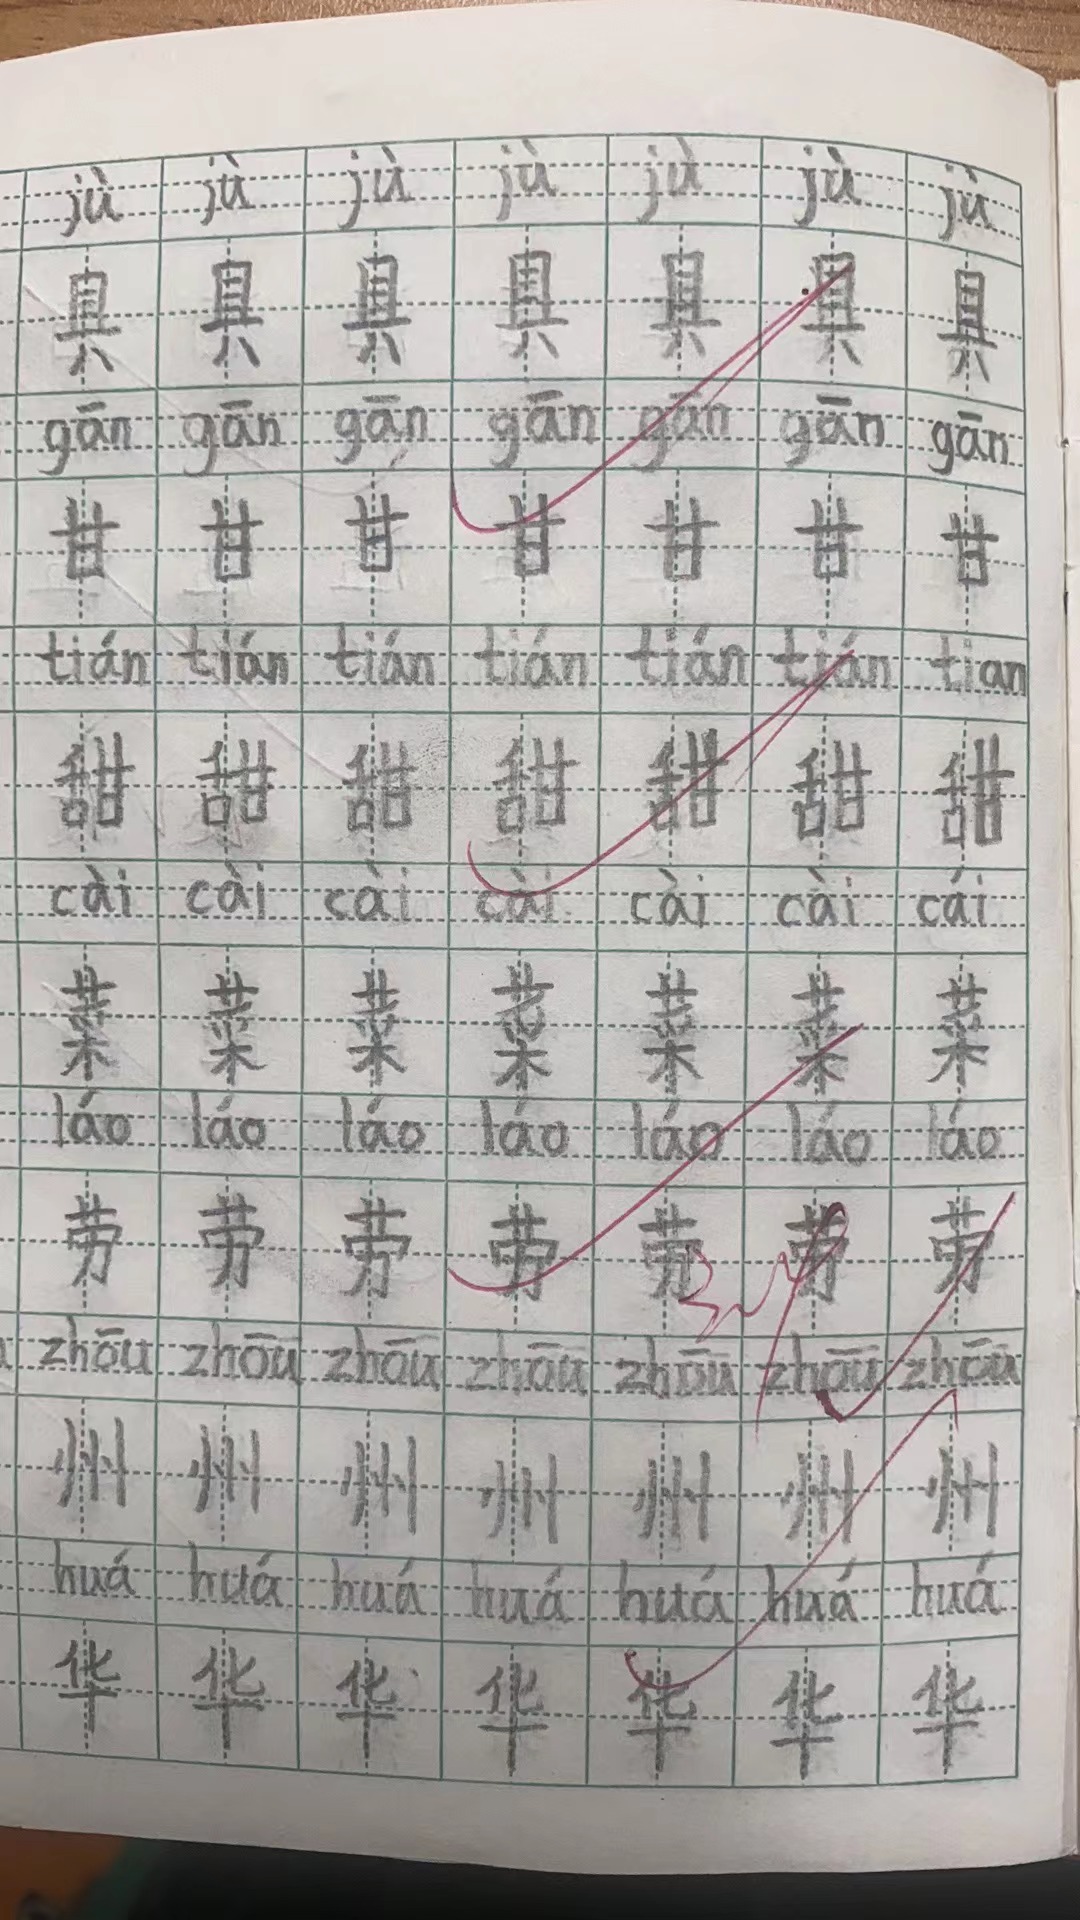 jù jù jù jù jù jù jù
具 具 具 具 具 具 具
gān gān gān gān gān gān gān
甘 甘 甘 甘 甘 甘 甘
tián tián tián tián tián tián tian
甜 甜 甜 甜 甜 甜 甜
cài cài cài cài cài cài cái
菜 菜 菜 菜 菜 菜 菜
láo láo láo láo láo láo láo
劳 劳 劳 劳 劳 劳 劳
zhōu zhōu zhōu zhōu zhōu zhōu zhōu
州 州 州 州 州 州 州
huá huá huá huá huá huá huá
华 华 华 华 华 华 华